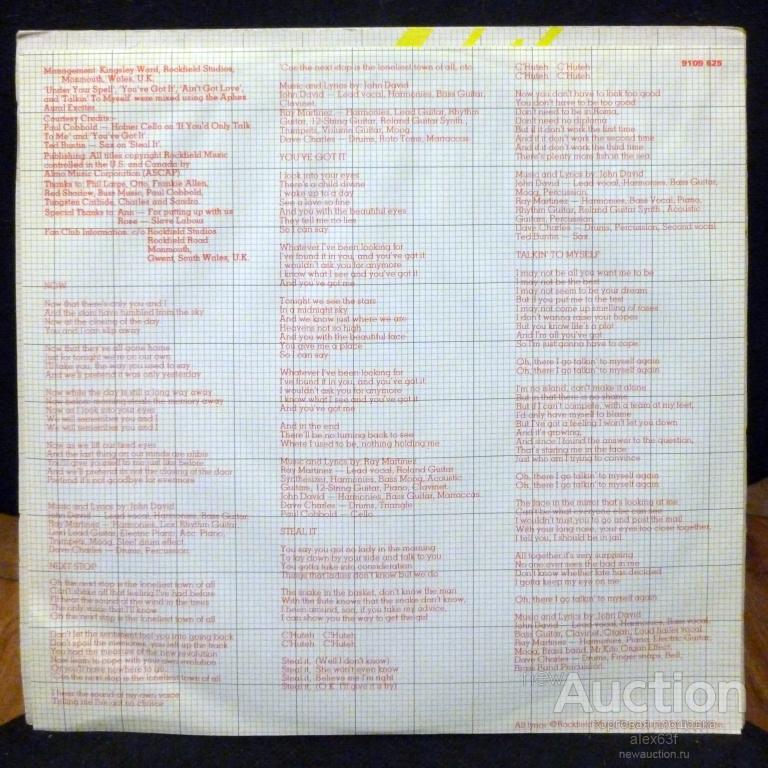 Management: Kingsley Ward, Rockfield Studios,
Monmouth, Wales, U.K.
'Under Your Spell', 'You've Got It', 'Ain't Got Love',
and 'Talkin' To Myself' were mixed using the Aphex
Aural Exciter.
Courtesy Credits:—
Paul Cobbold — Hofner Cello on 'If You'd Only Talk
To Me' and 'You've Got It'.
Ted Buntin — Sax on 'Steal It'.
Publishing: All titles copyright Rockfield Music
controlled in the U.S. and Canada by
Almo Music Corporation (ASCAP).
Thanks to: Phil Large, Otto, Frankie Allen,
Red Shadow, Buzz Music, Paul Cobbold,
Tungsten Carbide, Charles and Sandro.
Special Thanks to: Ann — For putting up with us
Rose — Slave Labour
Fan Club Information: c/o Rockfield Studios
Rockfield Road
Monmouth,
Gwent, South Wales, U.K.
NOW
Now that there's only you and I
And the stars have tumbled from the sky
Now at the closing of the day
You and I can slip away
Now that they've all gone home
Just for tonight we're on our own
I'll take you, the way you used to say
And we'll pretend it was only yesterday
Now while the day is still a long way away
Now before morning steals the memory away
Now as I look into your eyes
We will remember you and I
We will remember you and I
Now as we lift our tired eyes
And the last thing on our minds are alibis
You'll give yourself to me just like before
And we'll pretend it's not the closing of the door
Pretend it's not goodbye for evermore
Music and Lyrics by: John David
John David — Lead vocal, Harmonies, Bass Guitar.
Ray Martinez — Harmonies, Lead Rhythm Guitar,
Lead Guitar, Electric Piano, Acc. Piano,
Trumpets, Moog, Steel drum effect.
Dave Charles — Drums, Percussion.
NEXT STOP
Oh the next stop is the loneliest town of all
Can't shake off that feeling I've had before
I'll hear the sound of the wind in the trees
The only voice that I'll know
Oh the next stop is the loneliest town of all
Don't let the sentiment fool you into going back
Don't spoil the memories, you tell up the track
You had the measure of the new revolution
Now learn to cope with your own evolution
Or you'll have nowhere to go
'Cos the next stop is the loneliest town of all
I hear the sound of my own voice
Telling me I've got no choice
'Cos the next stop is the loneliest town of all, etc.
Music and Lyrics by: John David
John David — Lead vocal, Harmonies, Bass Guitar,
Clavinet.
Ray Martinez — Harmonies, Lead Guitar, Rhythm
Guitar, 12-String Guitar, Roland Guitar Synth,
Trumpets, Volume Guitar, Moog.
Dave Charles — Drums, Roto Toms, Marraccas.
YOU'VE GOT IT
I look into your eyes
There's a child divine
Wake up to a day
See a love so fine
And you with the beautiful eyes
They tell me no lies
So I can say
Whatever I've been looking for
I've found it in you, and you've got it
I wouldn't ask you for anymore
I know what I see and you've got it
And you've got me
Tonight we see the stars
In a midnight sky
And we know just where we are
Heavens not so high
And you with the beautiful face
You give me a place
So I can say
Whatever I've been looking for
I've found it in you, and you've got it
I wouldn't ask you for anymore
I know what I see and you've got it
And you've got me
And in the end
There'll be no turning back to see
Where I used to be, nothing holding me
Music and Lyrics by: Ray Martinez
Ray Martinez — Lead vocal, Roland Guitar
Synthesizer, Harmonies, Bass Moog, Acoustic
Guitars, 12-String Guitar, Piano, Clavinet.
John David — Harmonies, Bass Guitar, Marraccas.
Dave Charles — Drums, Triangle
Paul Cobbold — Cello.
STEAL IT
You say you got no lady in the morning
To lay down by your side and talk to you
You gotta take into consideration
Things that ladies don't know but we do
The snake in the basket, don't know the man
With the flute knows that the snake don't know,
I been around, son, if you take my advice,
I can show you the way to get the girl
C'Huteh C'Huteh
C'Huteh C'Huteh
Steal it, (Well I don't know)
Steal it, She won't even know
Steal it, Believe me I'm right
Steal it, (O.K. I'll give it a try)
C'Huteh C'Huteh
C'Huteh C'Huteh
9109 625
Now you don't have to look too good
You don't have to be too good
Don't need to be in Roma,
Don't need no diploma
But if it don't work the first time
And if it don't work the second time
And if it don't work the third time
There's plenty more fish in the sea.
Music and Lyrics by: John David
John David — Lead vocal, Harmonies, Bass Guitar,
Moog, Percussion.
Ray Martinez — Harmonies, Bass Vocal, Piano,
Rhythm Guitar, Roland Guitar Synth., Acoustic
Guitars, Percussion.
Dave Charles — Drums, Percussion, Second vocal
Ted Buntin — Sax
TALKIN' TO MYSELF
I may not be all you want me to be
I may not be the best
I may not seem to be your dream
But if you put me to the test
I may not come up smelling of roses
I don't wanna raise your hopes
But you know life's a plot
And I'm all you've got
So I'm just gonna have to cope
Oh, there I go talkin' to myself again
Oh, there I go talkin' to myself again
I'm no island, can't make it alone
But in that there is no shame
But if I can't compete, with a team at my feet,
I'd only have myself to blame
But I've got a feeling I won't let you down
And it's growing,
And since I found the answer to the question,
That's staring me in the face
Just who am I trying to convince
Oh, there I go talkin' to myself again
Oh, there I go talkin' to myself again
The face in the mirror that's looking at me
Can't be what everyone else can see
I wouldn't trust you to go and post the mail
With your long nose, your eyes too close together,
I tell you, I should be in jail
All together it's very surprising
No one ever sees the bad in me
Don't know whether fate has decided
I gotta keep my eye on me
Oh, there I go talkin' to myself again
Music and Lyrics by: John David
John David — Lead vocal, Harmonies, Bass vocal,
Bass Guitar, Clavinet, Organ, Loud hailer vocal.
Ray Martinez — Harmonies, Piano, Electric Guitar,
Moog, Brass band, Mr Kite Organ Effect.
Dave Charles — Drums, Finger snaps, Bell,
Brass Band Percussion
All lyrics © Rockfield Music
new
Auction
Торговая площадка
alex63f
newauction.ru